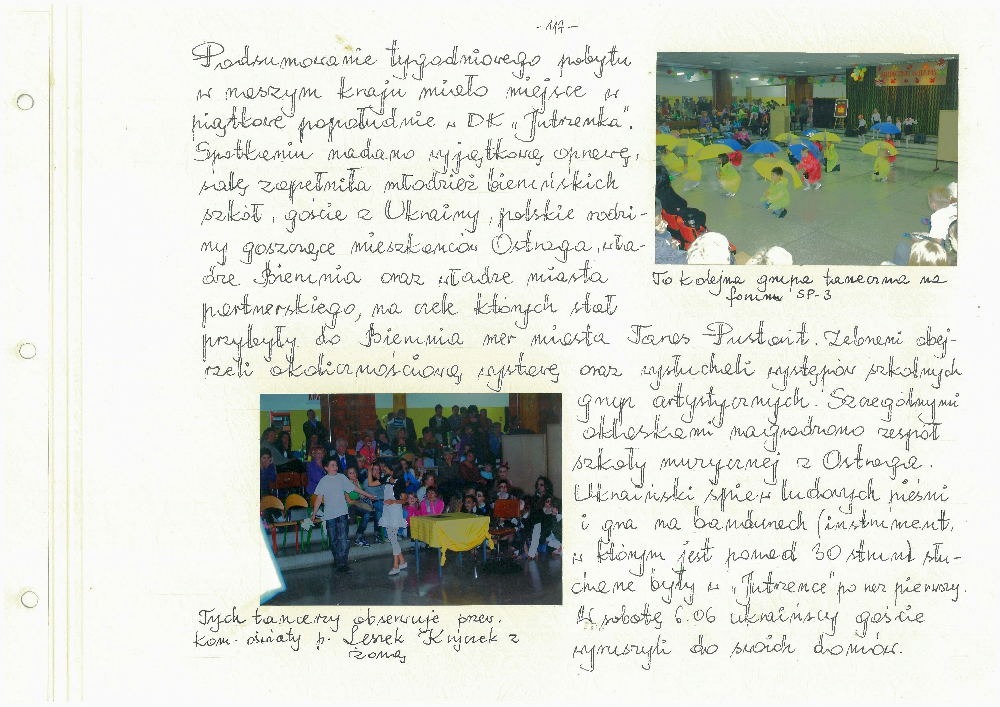 - 117 -
Podsumowanie tygodniowego pobytu
w naszym kraju miało miejsce w
piątkowe popołudnie w DK „Jutrzenka".
Spotkaniu nadano wyjątkową oprawę,
salę zapełniła młodzież bieruńskich
szkół, goście z Ukrainy, polskie rodzi-
ny goszczące mieszkańców Ostroga, wła-
dze Bierunia oraz władze miasta
partnerskiego, na czele których stał
przybyły do Bierunia mer miasta Taras Pustovit. Zebrani obej-
rzeli okolicznościową wystawę oraz wysłuchali występów szkolnych
grup artystycznych. Szczególnymi
oklaskami nagrodzono zespół
szkoły muzycznej z Ostroga.
Ukraiński śpiew ludowych pieśni
i gra na bandurach (instrument,
w którym jest ponad 30 strun) słu-
chane były w „Jutrzence" po raz pierwszy.
W sobotę 6.06 ukraińscy goście
wyruszyli do swoich domów.
To kolejna grupa taneczna na
forum SP-3
Tych tancerzy obserwuje prze.
kom. oświaty p. Leszek Kryczek z
żoną